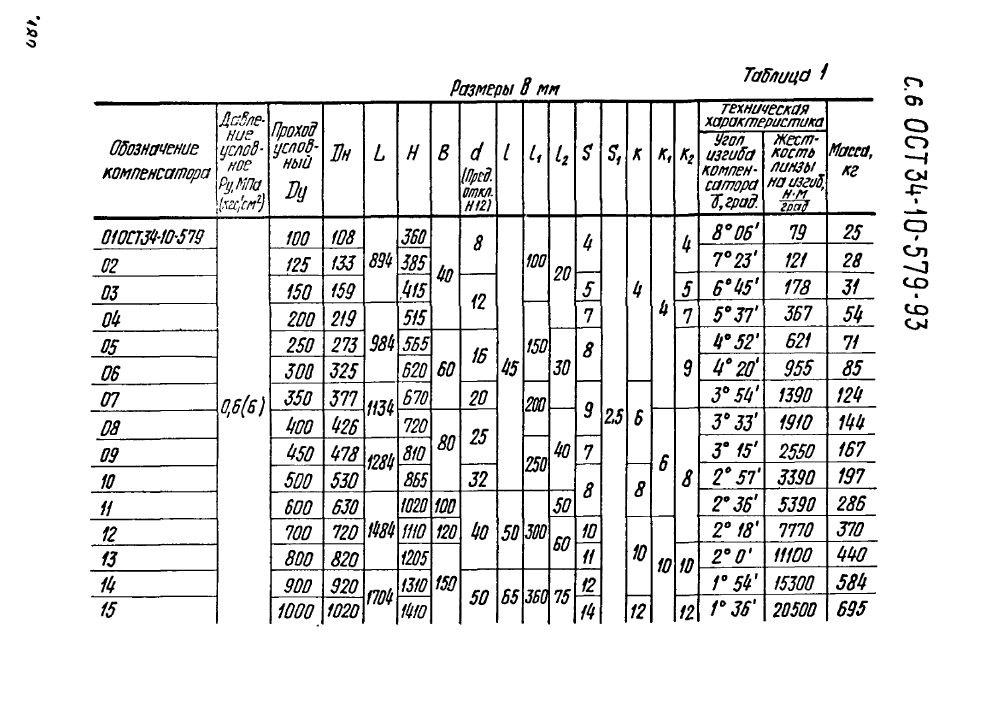 180
С. 6 ОСТ 34-10-579-93
Таблица 1
Размеры в мм
Обозначение компенсатора | Давление условное Ру, МПа (кгс/см²) | Проход условный Dу | Dн | L | H | B | d (Пред. откл. H12) | l | l₁ | l₂ | S | S₁ | K | K₁ | K₂ | Техническая характеристика: Угол изгиба компенсатора б, град. | Жесткость линзы на изгиб, Н·М/град | Масса, кг
01 ОСТ34-10-579 | 0,6(6) | 100 | 108 | 894 | 360 | 40 | 8 | 45 | 100 | 20 | 4 | 2,5 | 4 | 4 | 4 | 8° 06' | 79 | 25
02 | 125 | 133 | 385 | 7° 23' | 121 | 28
03 | 150 | 159 | 415 | 12 | 5 | 5 | 6° 45' | 178 | 31
04 | 200 | 219 | 984 | 515 | 150 | 7 | 7 | 5° 37' | 367 | 54
05 | 250 | 273 | 565 | 60 | 16 | 30 | 8 | 9 | 4° 52' | 621 | 71
06 | 300 | 325 | 620 | 4° 20' | 955 | 85
07 | 350 | 377 | 1134 | 670 | 20 | 200 | 9 | 6 | 3° 54' | 1390 | 124
08 | 400 | 426 | 720 | 80 | 25 | 40 | 6 | 8 | 3° 33' | 1910 | 144
09 | 450 | 478 | 1284 | 810 | 250 | 7 | 3° 15' | 2550 | 167
10 | 500 | 530 | 865 | 32 | 8 | 8 | 2° 57' | 3390 | 197
11 | 600 | 630 | 1484 | 1020 | 100 | 40 | 50 | 300 | 50 | 2° 36' | 5390 | 286
12 | 700 | 720 | 1110 | 120 | 60 | 10 | 10 | 10 | 10 | 2° 18' | 7770 | 370
13 | 800 | 820 | 1205 | 150 | 11 | 2° 0' | 11100 | 440
14 | 900 | 920 | 1704 | 1310 | 50 | 65 | 360 | 75 | 12 | 1° 54' | 15300 | 584
15 | 1000 | 1020 | 1410 | 14 | 12 | 12 | 1° 36' | 20500 | 695